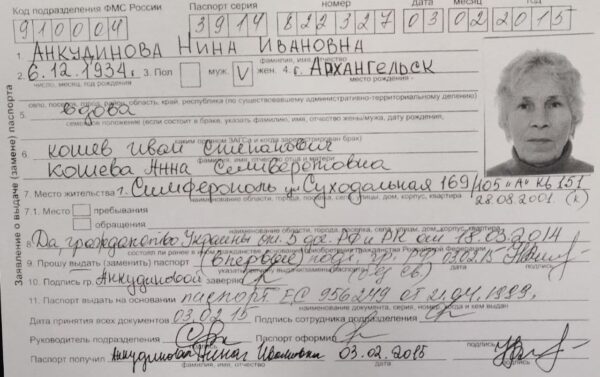 Код подразделения ФМС России Паспорт серия номер дата месяц год
910004 3914 822327 03 02 2015
1. Анкудинова Нина Ивановна
фамилия, имя, отчество
2. 6.12.1934г. 3. Пол муж. V жен. 4. г. Архангельск
число, месяц, год рождения место рождения -
село, поселок, город, район, область, край, республика (по существовавшему административно-территориальному делению)
5. вдова
семейное положение (если состоит в браке, указать фамилию, имя, отчество жены/мужа, дату рождения,
каким органом ЗАГСа и когда зарегистрирован брак)
6. Кошев Иван Степанович
фамилии, имена, отчества отца и матери
Кошева Анна
7. Место жительства г. Симферополь ул Суходальная 169/105 "А" кв 151
наименование области, города, поселка, села, улицы, дом, корпус, квартира
28.08.2001. (к)
7.1. Место пребывания
обращения
наименование области, города, поселка, села, улицы, дом, корпус, квартира
8. Да, гражданство Украины ст. 5 РФ и РК от 18.03.2014
9. Прошу выдать (заменить) паспорт (впервые) 030215
10. Подпись гр. Анкудиновой заверяю
11. Паспорт выдать на основании паспорт ЕС 956219 от 21.04.1999.
наименование документа, серия, номер, когда и кем выдан
Дата принятия всех документов 03.02.15 Подпись сотрудника подразделения
Руководитель подразделения Паспорт оформил
подпись подпись
Паспорт получил Анкудинова Нина Ивановна 03.02.2015
фамилия, имя, отчество дата подпись
Заявление о выдаче (замене) паспорта